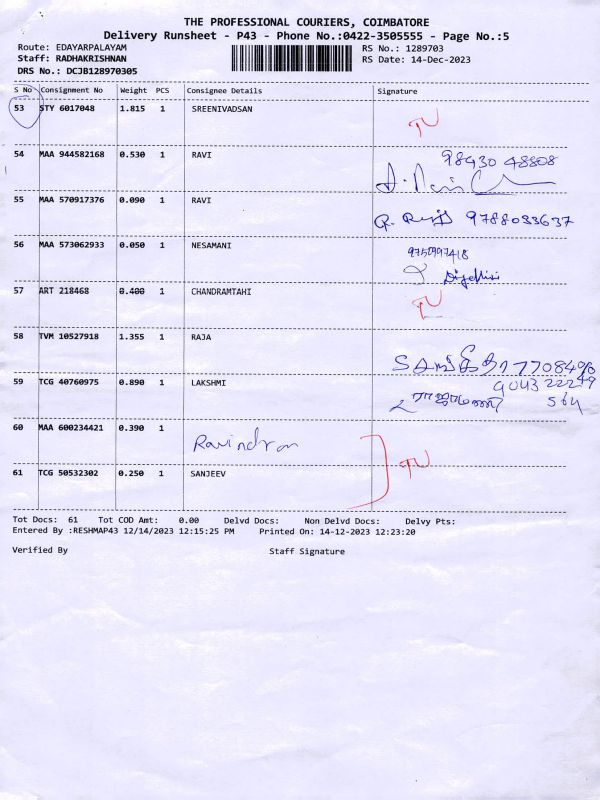 THE PROFESSIONAL COURIERS, COIMBATORE
Delivery Runsheet - P43 - Phone No.:0422-3505555 - Page No.:5
Route: EDAYARPALAYAM RS No.: 1289703
Staff: RADHAKRISHNAN RS Date: 14-Dec-2023
DRS No.: DCJB128970305
S No Consignment No Weight PCS Consignee Details Signature
53 STY 6017048 1.815 1 SREENIVADSAN
54 MAA 944582168 0.530 1 RAVI 98430 48808
55 MAA 570917376 0.090 1 RAVI 9788033637
56 MAA 573062933 0.050 1 NESAMANI 9750997418
57 ART 218468 0.400 1 CHANDRAMTAHI
58 TVM 10527918 1.355 1 RAJA
59 TCG 40760975 0.890 1 LAKSHMI
60 MAA 600234421 0.390 1 Ravindran
61 TCG 50532302 0.250 1 SANJEEV
Tot Docs: 61 Tot COD Amt: 0.00 Delvd Docs: Non Delvd Docs: Delvy Pts:
Entered By :RESHMAP43 12/14/2023 12:15:25 PM Printed On: 14-12-2023 12:23:20
Verified By Staff Signature